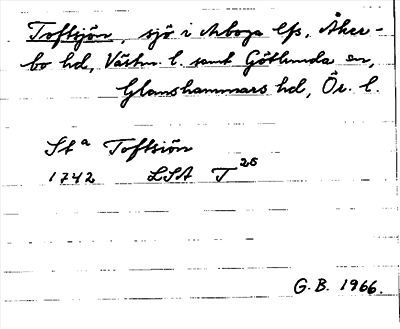 Toftsjön, sjö i Arboga lfs, Åker-
bo hd, Västm. l. samt Götlunda sn,
Glanshammars hd, Ör. l.
St a Toftsiön
1742 LSA T 26
G. B. 1966.